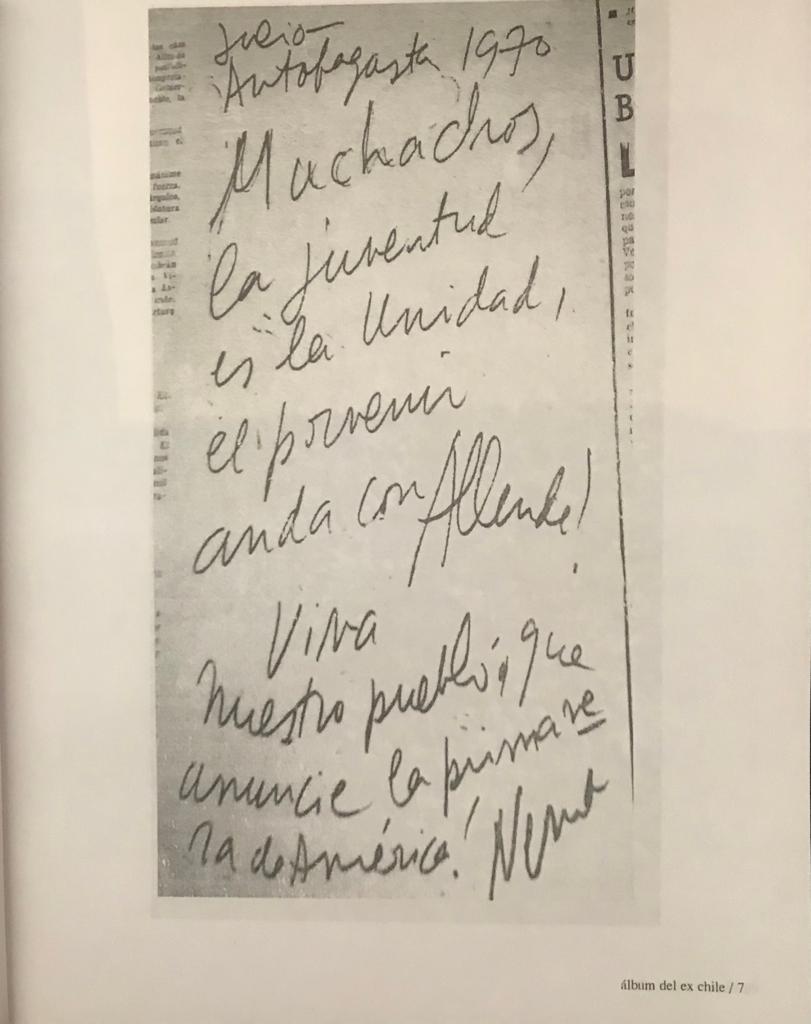 Julio-
Antofagasta 1970
U
B
L
Muchachos,
la juventud
es la Unidad,
el porvenir
anda con Allende!
Viva
nuestro pueblo, que
anuncie la primave
ra de América! Neruda
fuerza,
álbum del ex chile / 7